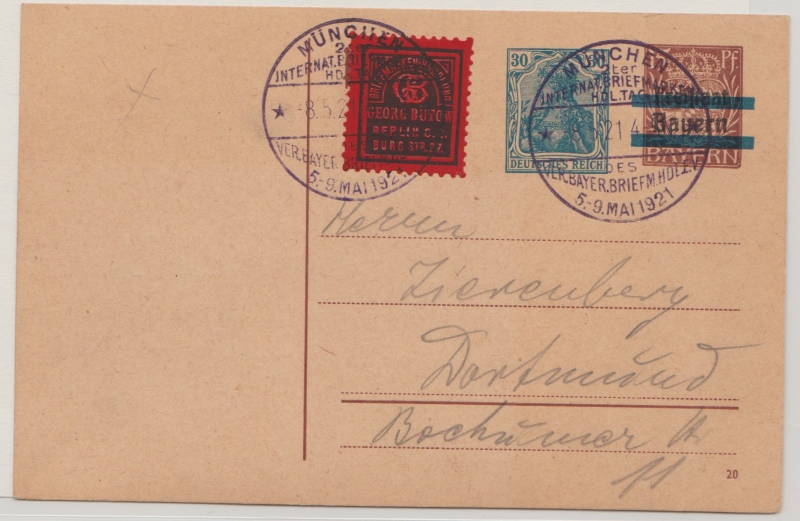 MÜNCHEN
2ter
INTERNAT.BRIEF
HDL.TAG
★ -8.5.2
VER.BAYER.BRIEFM
5.-9.MAI 1921
BRIEFMARKEN-HANDLUNG
GEORG BUTOW
BERLIN C.
BURG STR. 27.
30
DEUTSCHES REICH
MÜNCHEN
2ter
INTERNAT.BRIEFMARKEN
HDL.TAG
★ 21 4
DES
VER.BAYER.BRIEFM.HDL.E.V.
5.-9.MAI 1921
Pf
Freistaat
Bayern
BAYERN
Herrn
Zierenberg
Dortmund
Bochumer St
11
20